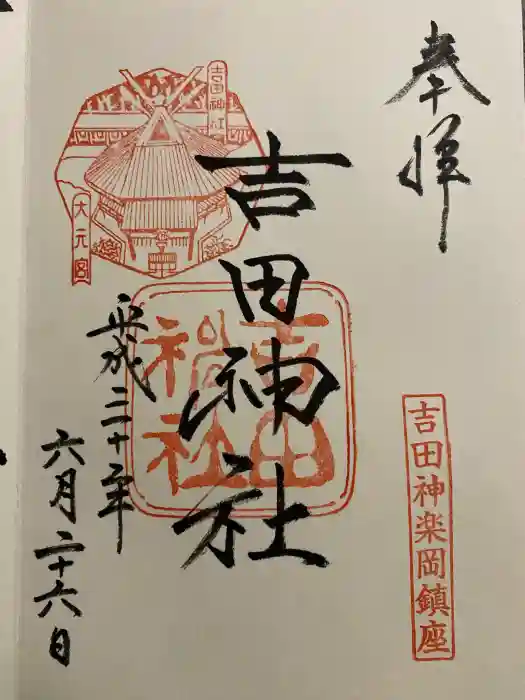 奉拝
吉田神楽岡鎮座
吉田神社
吉田神社
大元宮
吉田神社
平成三十年
六月二十六日